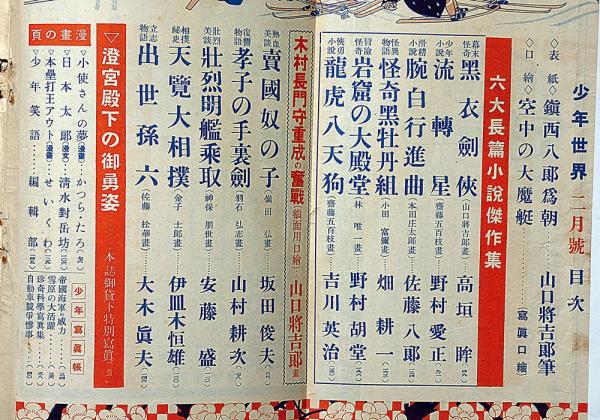 少年世界 二月號 目次
◇表紙◇鎭西八郎爲朝……山口將吉郎筆
◇口繪◇空中の大魔艇……(寫眞口繪)
六大長篇小說傑作集
幕末怪奇 黑衣劍俠(山口將吉郎畫)…高垣 眸
少年小說 流轉星(齋藤五百枝畫)…野村愛正
滑稽小說 腕白行進曲(本田庄太郎畫)…佐藤八郎
怪異物語 怪奇黑牡丹組(小田 富彌畫)…畑 耕一
冒險怪奇 岩窟の大殿堂(林 唯一畫)…野村胡堂
俠勇小說 龍虎八天狗(齋藤五百枝畫)…吉川英治
木村長門守重成の奮戰 額面用口繪 山口將吉郎畫
熱血美談 賣國奴の子 坂田俊夫
復讐書語 孝子の手裏劍(羽石 弘志畫) 山村耕次
壯烈美談 壯烈明艦乘取(神保 朋世畫) 安藤 盛
相撲秘史 天覽大相撲(金子 士郎畫) 伊皿木恒雄
立志物語 出世孫六(佐藤 松華畫) 大木眞夫
▽澄宮殿下の御勇姿……本誌御貸下特別寫眞
漫畫の頁
▽小使さんの夢(漫畫)…かつら・たろ
▽日本太郎(漫文)…淸水對岳坊
▽本壘打王アウト(漫畫)…せいくわ
▽少年笑語……編輯部
少年寫眞帳
帝國海軍の威力
雪原の大活躍
珍奇科學寫眞集
自動車競爭慘事